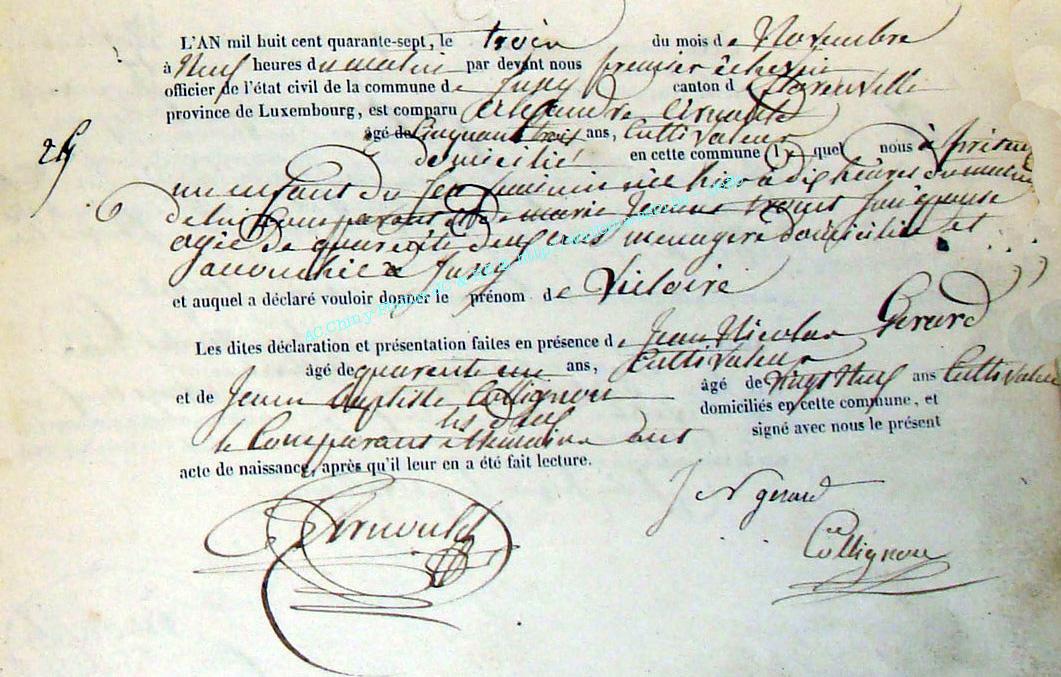 L'AN mil huit cent quarante-sept, le trois du mois de Novembre
à Neuf heures du matin par devant nous premier échevin
officier de l'état civil de la commune de Jusey canton de Florenville
province de Luxembourg, est comparu Alexandre Arnould
âgé de Cinquante trois ans, Cultivateur
domicilié en cette commune Le quel nous à présenté
un enfant du sexe feminin née hier à dix heures du matin
de lui Comparant et de marie Jeanne son épouse
agée de quarante deux ans menagere domiciliée et
accouchée à Jusey
et auquel a déclaré vouloir donner le prénom de Victoire
Les dites déclaration et présentation faites en présence de Jean Nicolas Gerard
âgé de quarante un ans, Cultivateur
et de Jean Baptiste Collignon âgé de Vingt Neuf ans Cultivateur
les deux domiciliés en cette commune, et
le Comparant et temoins ont signé avec nous le présent
acte de naissance, après qu'il leur en a été fait lecture.
J N gerard
Arnould
Collignon